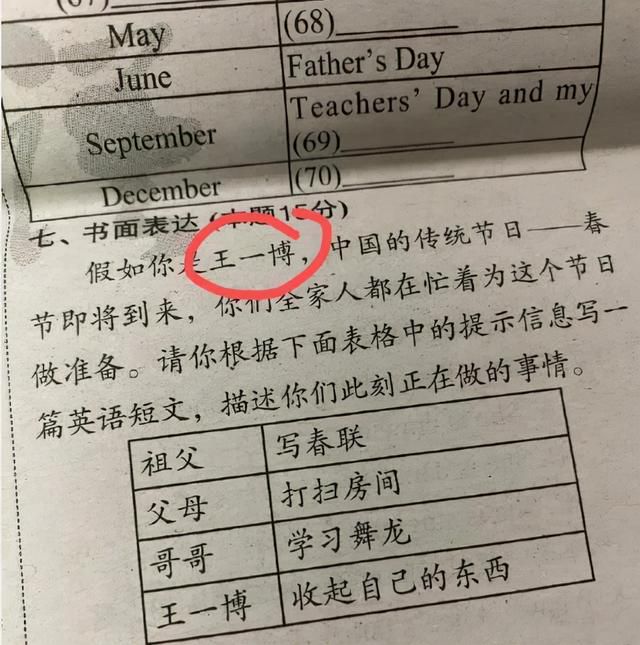 (67)
May
(68)
June
Father's Day
September
Teachers' Day and my
(69)
December
(70)
七、书面表达(本题15分)
假如你是王一博，中国的传统节日——春
节即将到来，你们全家人都在忙着为这个节日
做准备。请你根据下面表格中的提示信息写一
篇英语短文，描述你们此刻正在做的事情。
祖父 写春联
父母 打扫房间
哥哥 学习舞龙
王一博 收起自己的东西